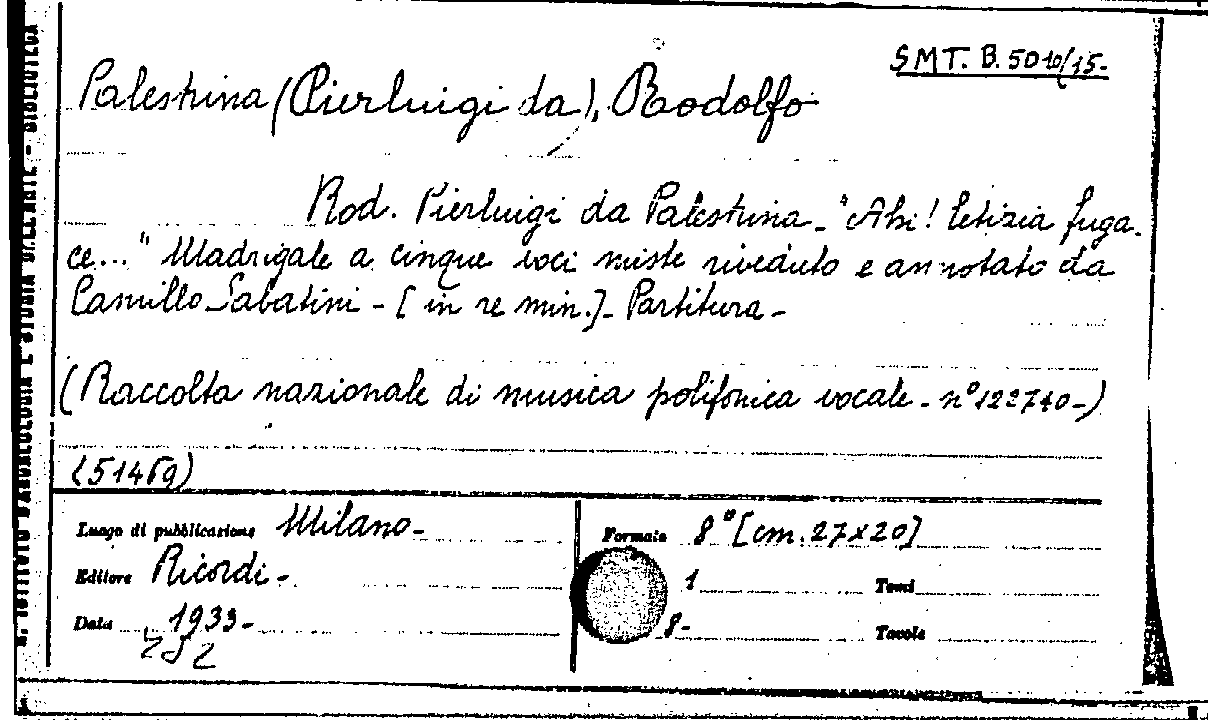 SMT. B. 5010/15-
Palestrina (Pierluigi da), Rodolfo
Rod. Pierluigi da Palestrina - "Ahi! letizia fuga-
ce..." Madrigale a cinque voci miste riveduto e annotato da
Camillo Sabatini - [in re min.] - Partitura -
(Raccolta nazionale di musica polifonica vocale - n° 122740 -)
(51469)
Luogo di pubblicazione Milano -
Editore Ricordi -
Data 1933 -
252
Formato 8° [cm. 27x20]
1 Tomi
8 - Tavole